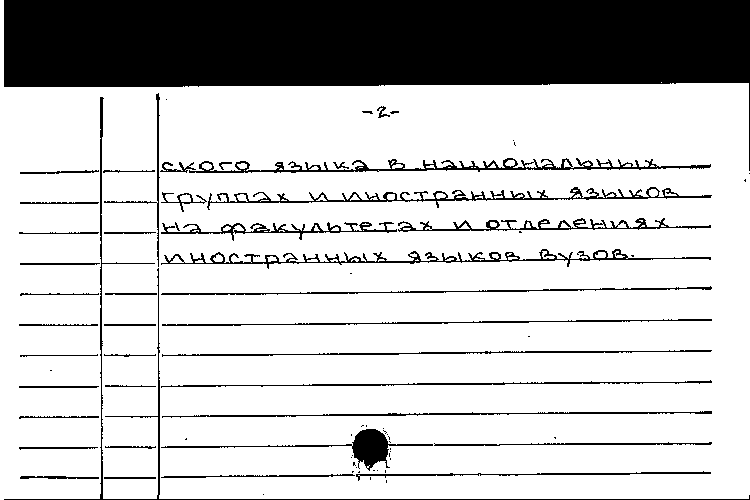 -2-
ского языка в национальных
группах и иностранных языков
на факультетах и отделениях
иностранных языков вузов.